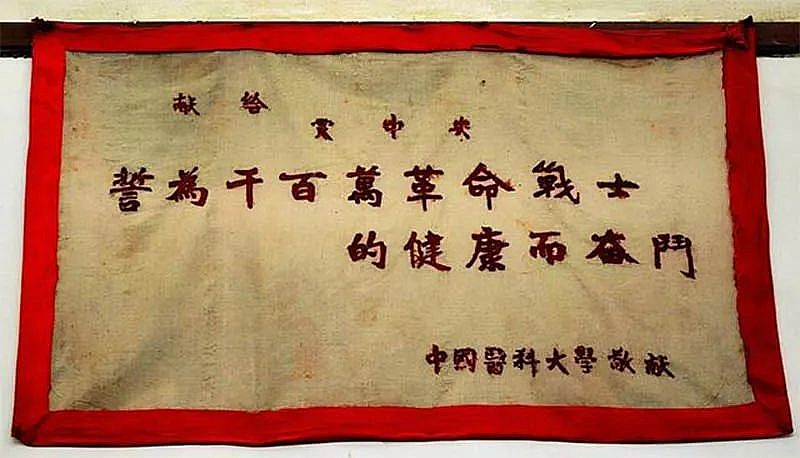 献给
党中央
誓為千百萬革命戰士
的健康而奋鬥
中國醫科大學敬献